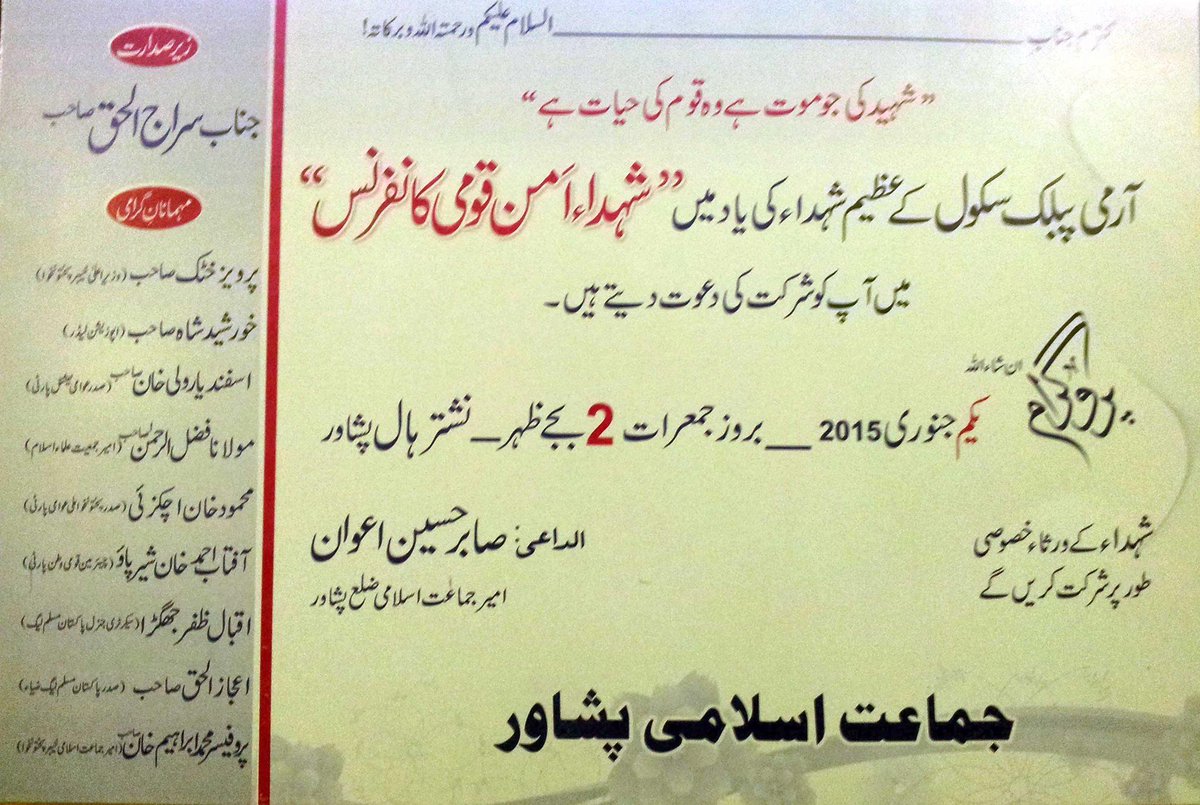 محترم جناب ________ السلام علیکم ورحمتہ اللہ وبرکاتہ!
”شہید کی جو موت ہے وہ قوم کی حیات ہے“
آرمی پبلک سکول کے عظیم شہداء کی یاد میں ”شہداء امن قومی کانفرنس“
میں آپ کو شرکت کی دعوت دیتے ہیں۔
پروگرام
ان شاء اللہ
یکم جنوری 2015 __ بروز جمعرات 2 بجے ظہر __ نشتر ہال پشاور
شہداء کے ورثاء خصوصی
طور پر شرکت کریں گے
الداعی: صابر حسین اعوان
امیر جماعت اسلامی ضلع پشاور
جماعت اسلامی پشاور
زیر صدارت
جناب سراج الحق صاحب
مہمانان گرامی
پرویز خٹک صاحب (وزیر اعلیٰ خیبر پختونخوا)
خورشید شاہ صاحب (اپوزیشن لیڈر)
اسفند یار ولی خان صاحب (صدر عوامی نیشنل پارٹی)
مولانا فضل الرحمن صاحب (امیر جمعیت علماء اسلام)
محمود خان اچکزئی (صدر پختونخوا ملی عوامی پارٹی)
آفتاب احمد خان شیرپاؤ (چیئرمین قومی وطن پارٹی)
اقبال ظفر جھگڑا (سیکرٹری جنرل پاکستان مسلم لیگ)
اعجاز الحق صاحب (صدر پاکستان مسلم لیگ ضیاء)
پروفیسر محمد ابراہیم خان صاحب (امیر جماعت اسلامی خیبر پختونخوا)